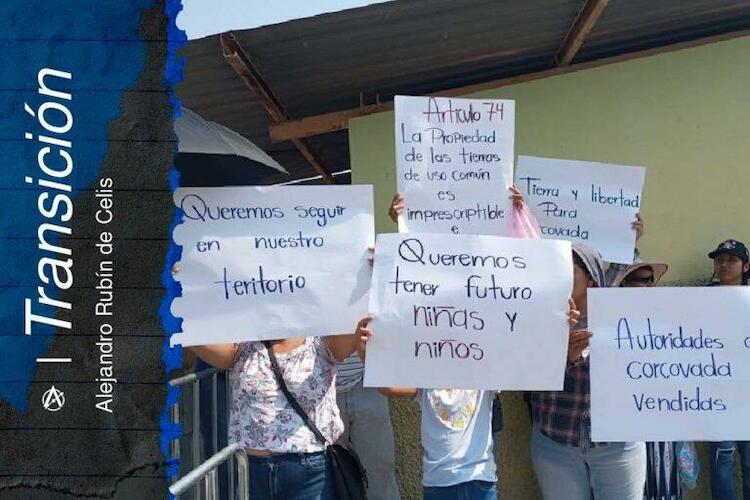 Transición
Alejandro Rubín de Celis
Articulo 74
La Propiedad
de las tierras
de uso común
es
imprescriptible
e
Tierra y libertad
Para
covada
Queremos seguir
en nuestro
teritorio
Queremos
tener futuro
niñas y
niños
Autoridades
corcovada
vendidas